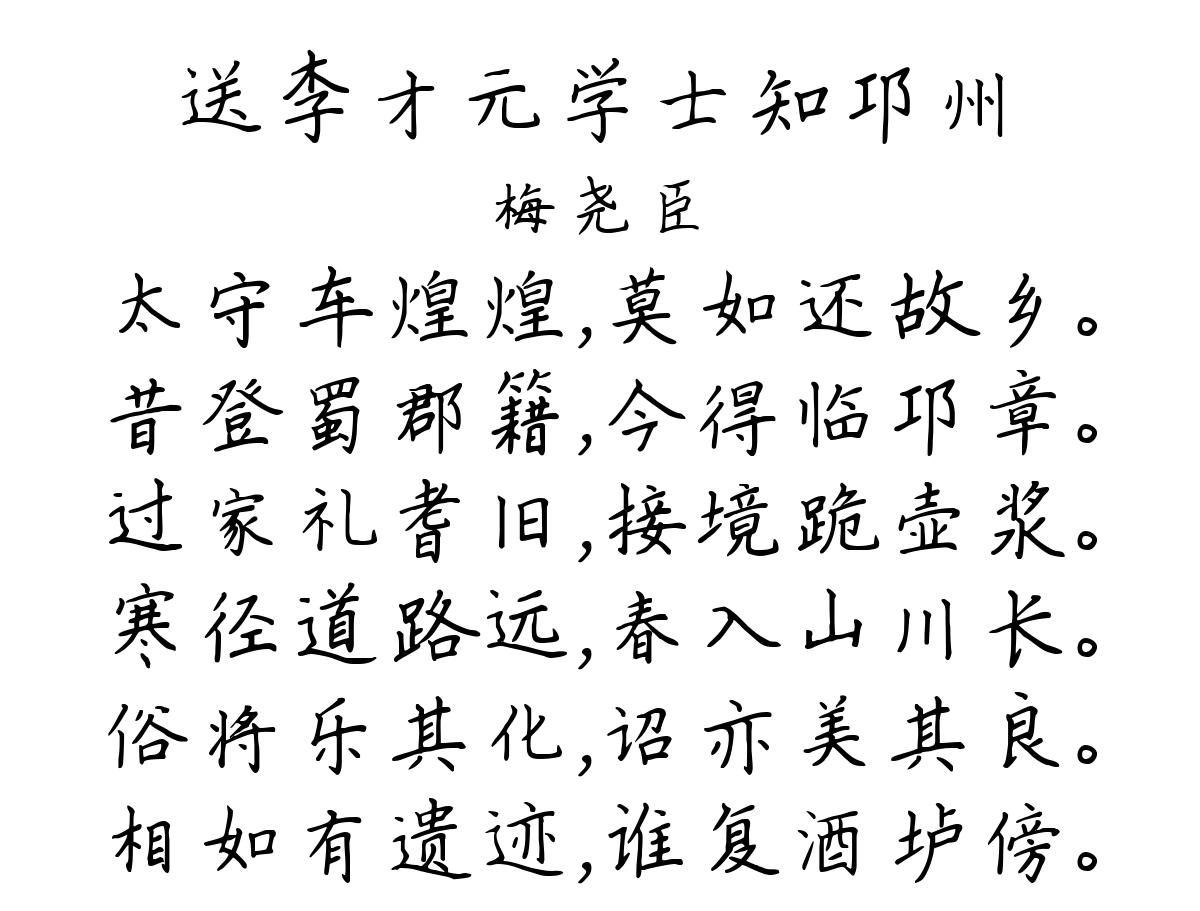 送李才元学士知邛州
梅尧臣
太守车煌煌,莫如还故乡。
昔登蜀郡籍,今得临邛章。
过家礼耆旧,接境跪壶浆。
寒径道路远,春入山川长。
俗将乐其化,诏亦美其良。
相如有遗迹,谁复酒垆傍。